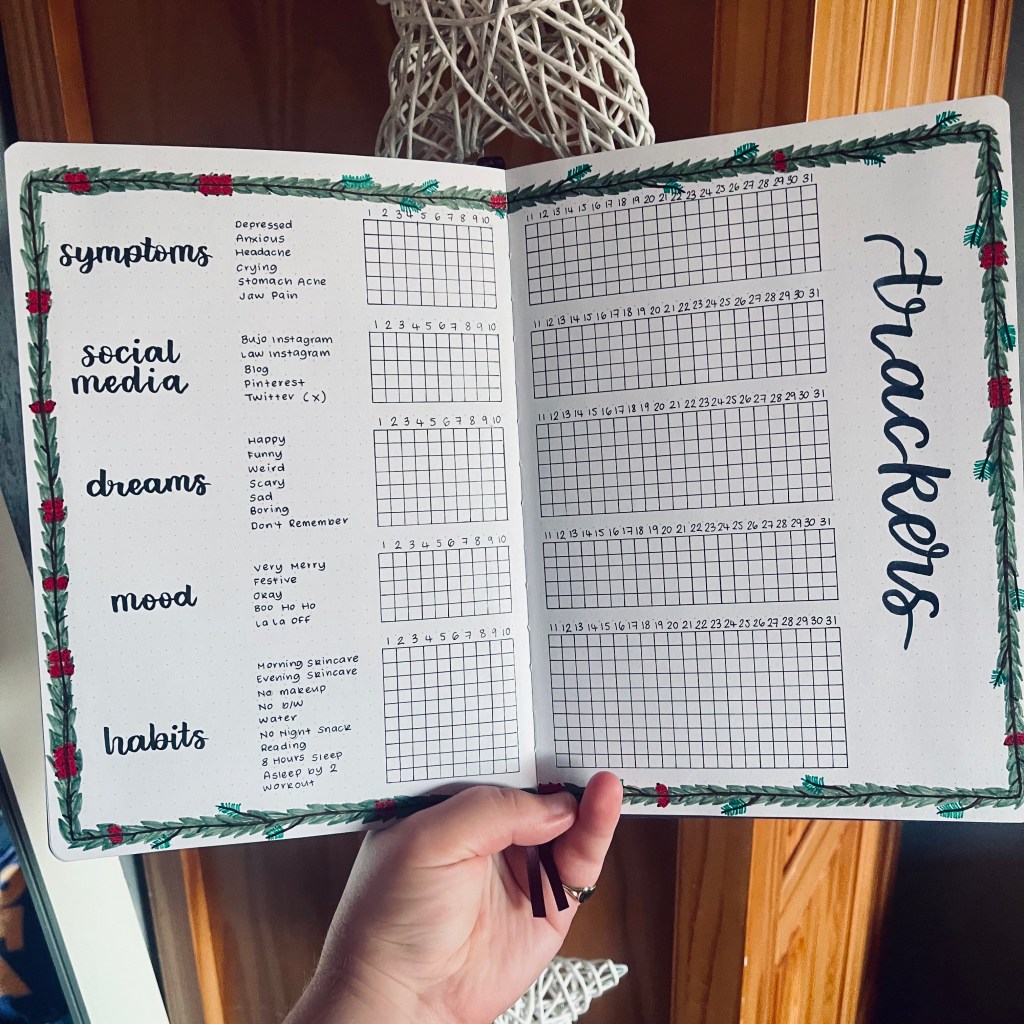 1 2 3 4 5 6 7 8 9 10 11 12 13 14 15 16 17 18 19 20 21 22 23 24 25 26 27 28 29 30 31
symptoms
Depressed
Anxious
Headache
Crying
Stomach Ache
Jaw Pain
1 2 3 4 5 6 7 8 9 10 11 12 13 14 15 16 17 18 19 20 21 22 23 24 25 26 27 28 29 30 31
social
media
Bujo Instagram
Law Instagram
Blog
Pinterest
Twitter (x)
1 2 3 4 5 6 7 8 9 10 11 12 13 14 15 16 17 18 19 20 21 22 23 24 25 26 27 28 29 30 31
dreams
Happy
Funny
Weird
Scary
Sad
Boring
Don't Remember
1 2 3 4 5 6 7 8 9 10 11 12 13 14 15 16 17 18 19 20 21 22 23 24 25 26 27 28 29 30 31
mood
Very Merry
Festive
Okay
Boo Ho Ho
La La Off
1 2 3 4 5 6 7 8 9 10 11 12 13 14 15 16 17 18 19 20 21 22 23 24 25 26 27 28 29 30 31
habits
Morning Skincare
Evening Skincare
No makeup
No b/w
Water
No Night Snack
Reading
8 Hours Sleep
Asleep by 2
Workout
Trackers